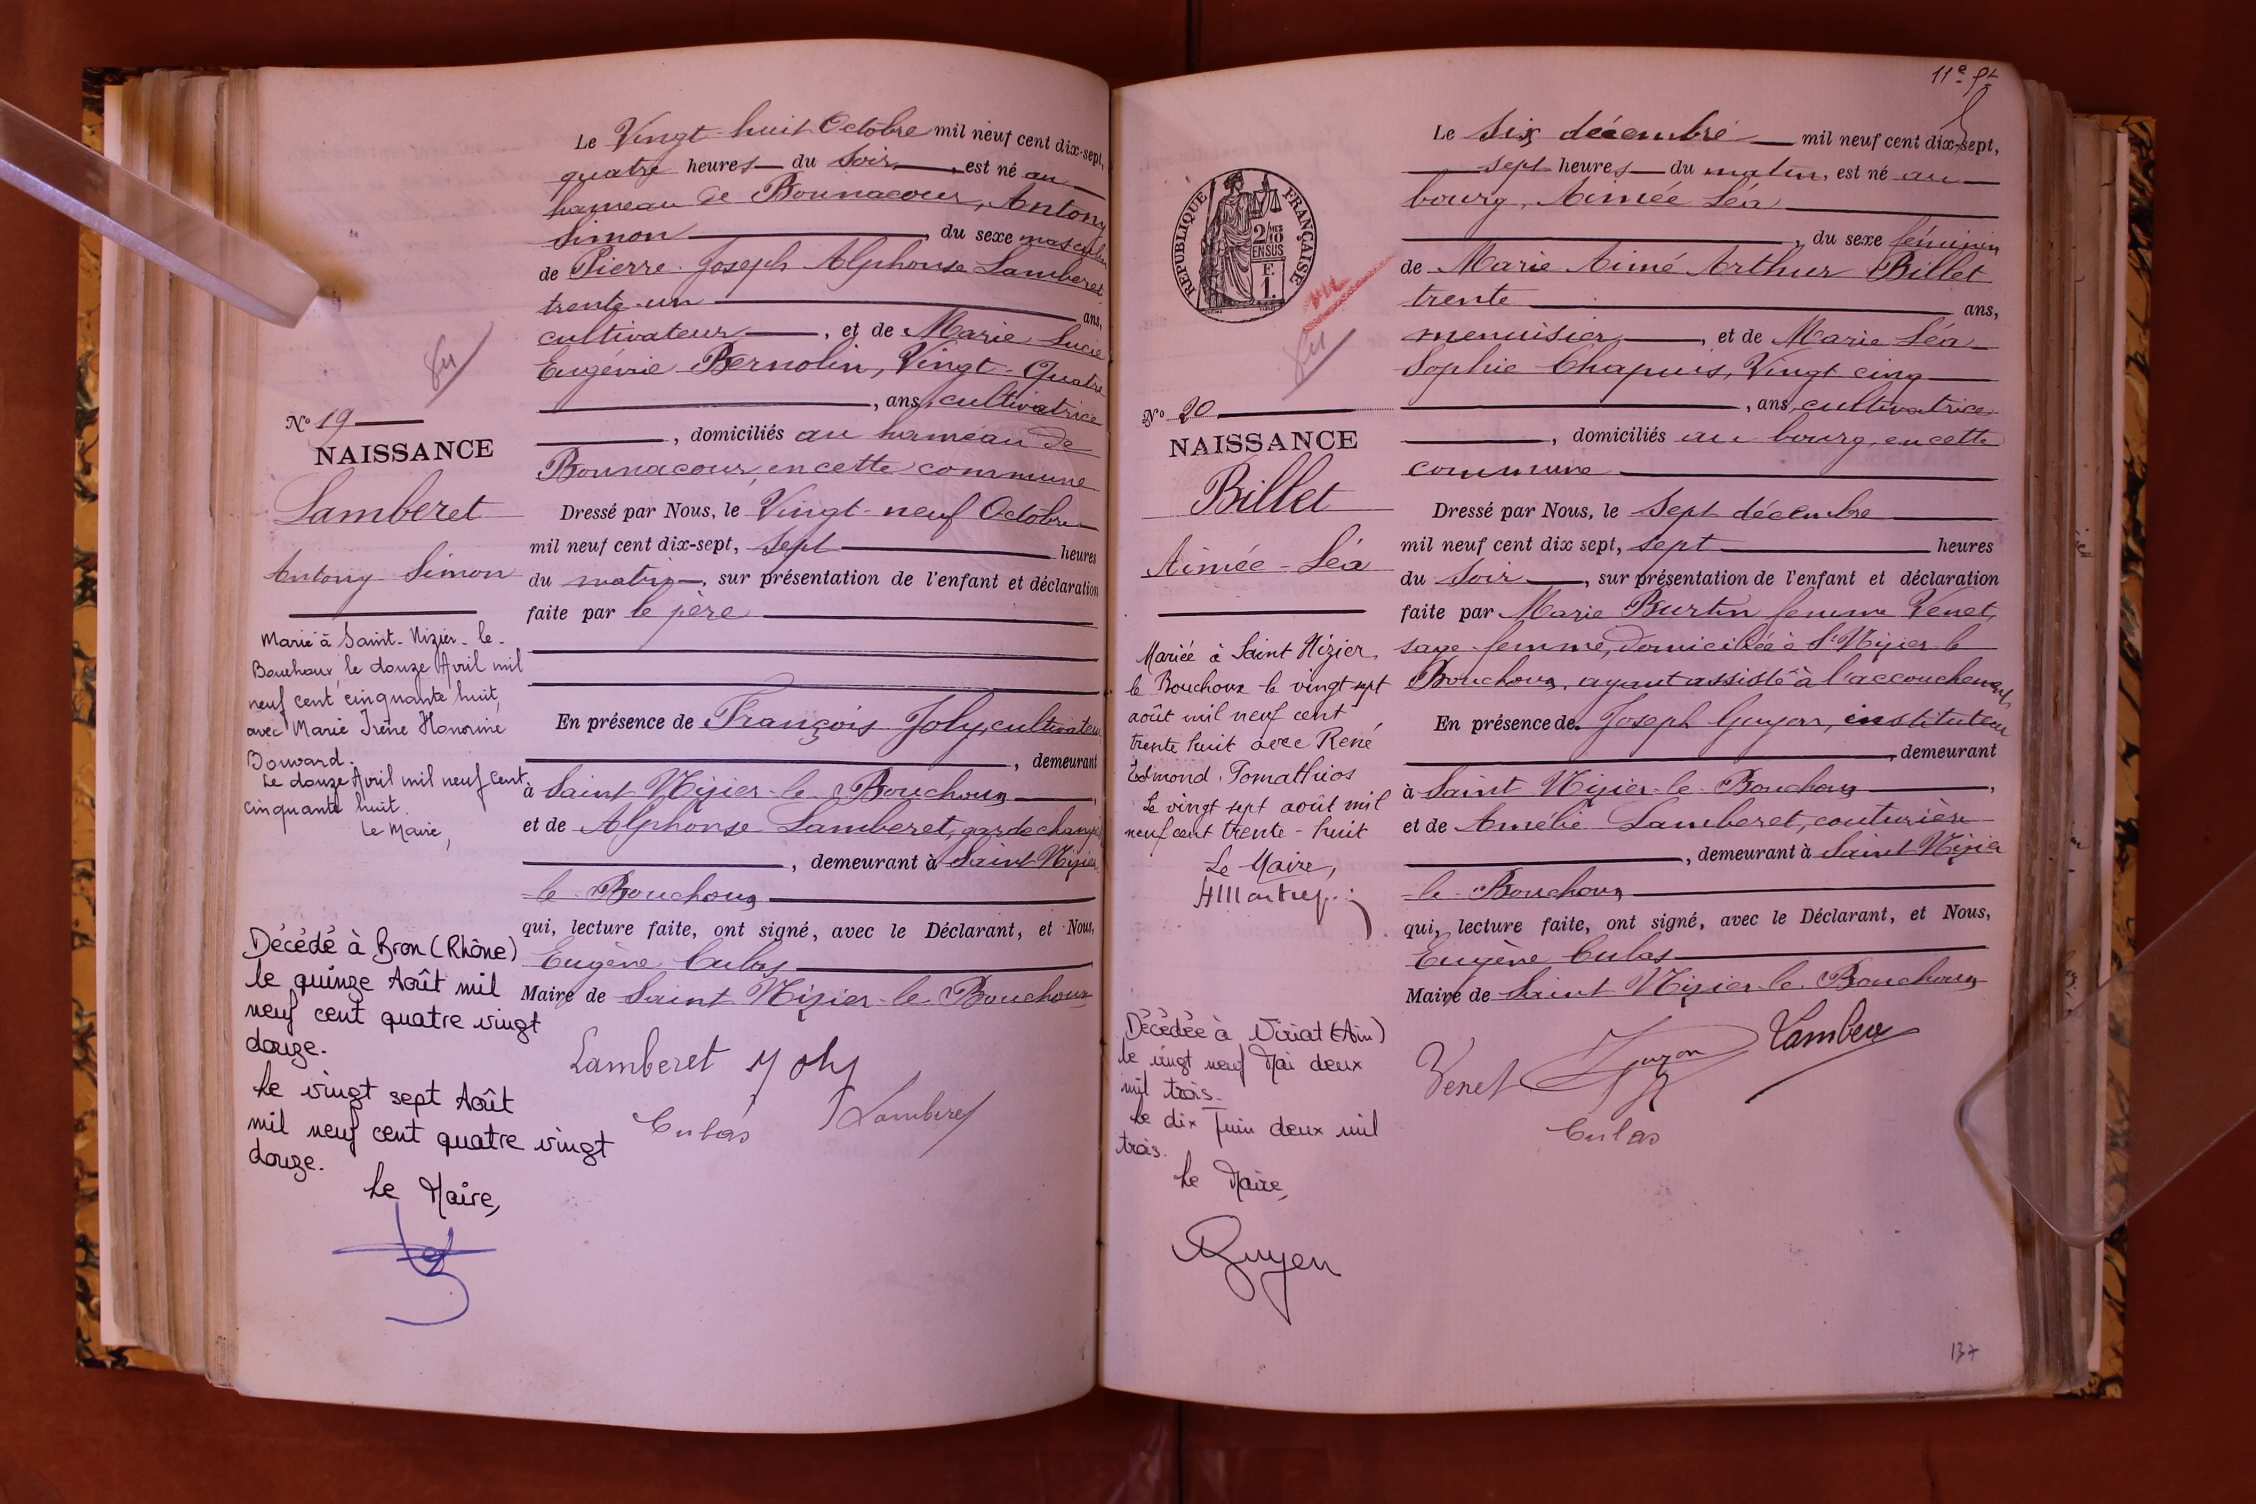 Le Vingt-huit Octobre mil neuf cent dix-sept,
quatre heures du soir, est né au
hameau de Bounacour, Antony
Simon, du sexe masculin
de Pierre Joseph Alphonse Lamberet
trente-un ans,
cultivateur, et de Marie Lucie
Eugénie Bernolin, Vingt-Quatre
, ans, cultivatrice
, domiciliés au hameau de
Bounacour, en cette commune
Dressé par Nous, le Vingt-neuf Octobre
mil neuf cent dix-sept, sept heures
du matin, sur présentation de l'enfant et déclaration
faite par le père
En présence de François Joly, cultivateur
, demeurant
à Saint Nizier-le-Bouchoux,
et de Alphonse Lamberet, garde champ
, demeurant à Saint Nizier
le-Bouchoux
qui, lecture faite, ont signé, avec le Déclarant, et Nous,
Eugène Culas
Maire de Saint Nizier-le-Bouchoux
Lamberet Joly
Culas Lamberet
Nº 19
NAISSANCE
Lamberet
Antony Simon
Marié à Saint-Nizier-le-
Bouchoux, le douze Avril mil
neuf cent cinquante huit,
avec Marie Irène Honorine
Bouvard.
Le douze Avril mil neuf cent
cinquante huit.
Le Maire,
Décédé à Bron (Rhône)
le quinze Août mil
neuf cent quatre vingt
douze.
Le vingt sept Août
mil neuf cent quatre vingt
douze.
Le Maire,
11e ft
RÉPUBLIQUE FRANÇAISE
2/10
EN SUS
F.
1.
vu
Le six décembre mil neuf cent dix-sept,
sept heures du matin, est né au
bourg, Aimée Léa
, du sexe féminin
de Marie Aimé Arthur Billet
trente ans,
menuisier, et de Marie Léa
Sophie Chapuis, Vingt cinq
, ans, cultivatrice
, domiciliés au bourg, en cette
commune
Dressé par Nous, le sept décembre
mil neuf cent dix sept, sept heures
du soir, sur présentation de l'enfant et déclaration
faite par Marie Burtin femme Venet,
sage-femme, domiciliée à St Nizier le
Bouchoux, ayant assisté à l'accouchement,
En présence de Joseph Guyon, instituteur
, demeurant
à Saint Nizier-le-Bouchoux,
et de Amélie Lamberet, couturière
, demeurant à Saint Nizier
le-Bouchoux
qui, lecture faite, ont signé, avec le Déclarant, et Nous,
Eugène Culas
Maire de Saint Nizier-le-Bouchoux
Venet Guyon Lamberet
Culas
Nº 20
NAISSANCE
Billet
Aimée-Léa
Mariée à Saint Nizier
le Bouchoux le vingt sept
août mil neuf cent
trente huit avec René
Edmond Tomathios
Le vingt sept août mil
neuf cent trente-huit
Le Maire,
Décédée à Viriat (Ain)
le vingt neuf Mai deux
mil trois.
Le dix Juin deux mil
trois.
Le Maire,
137